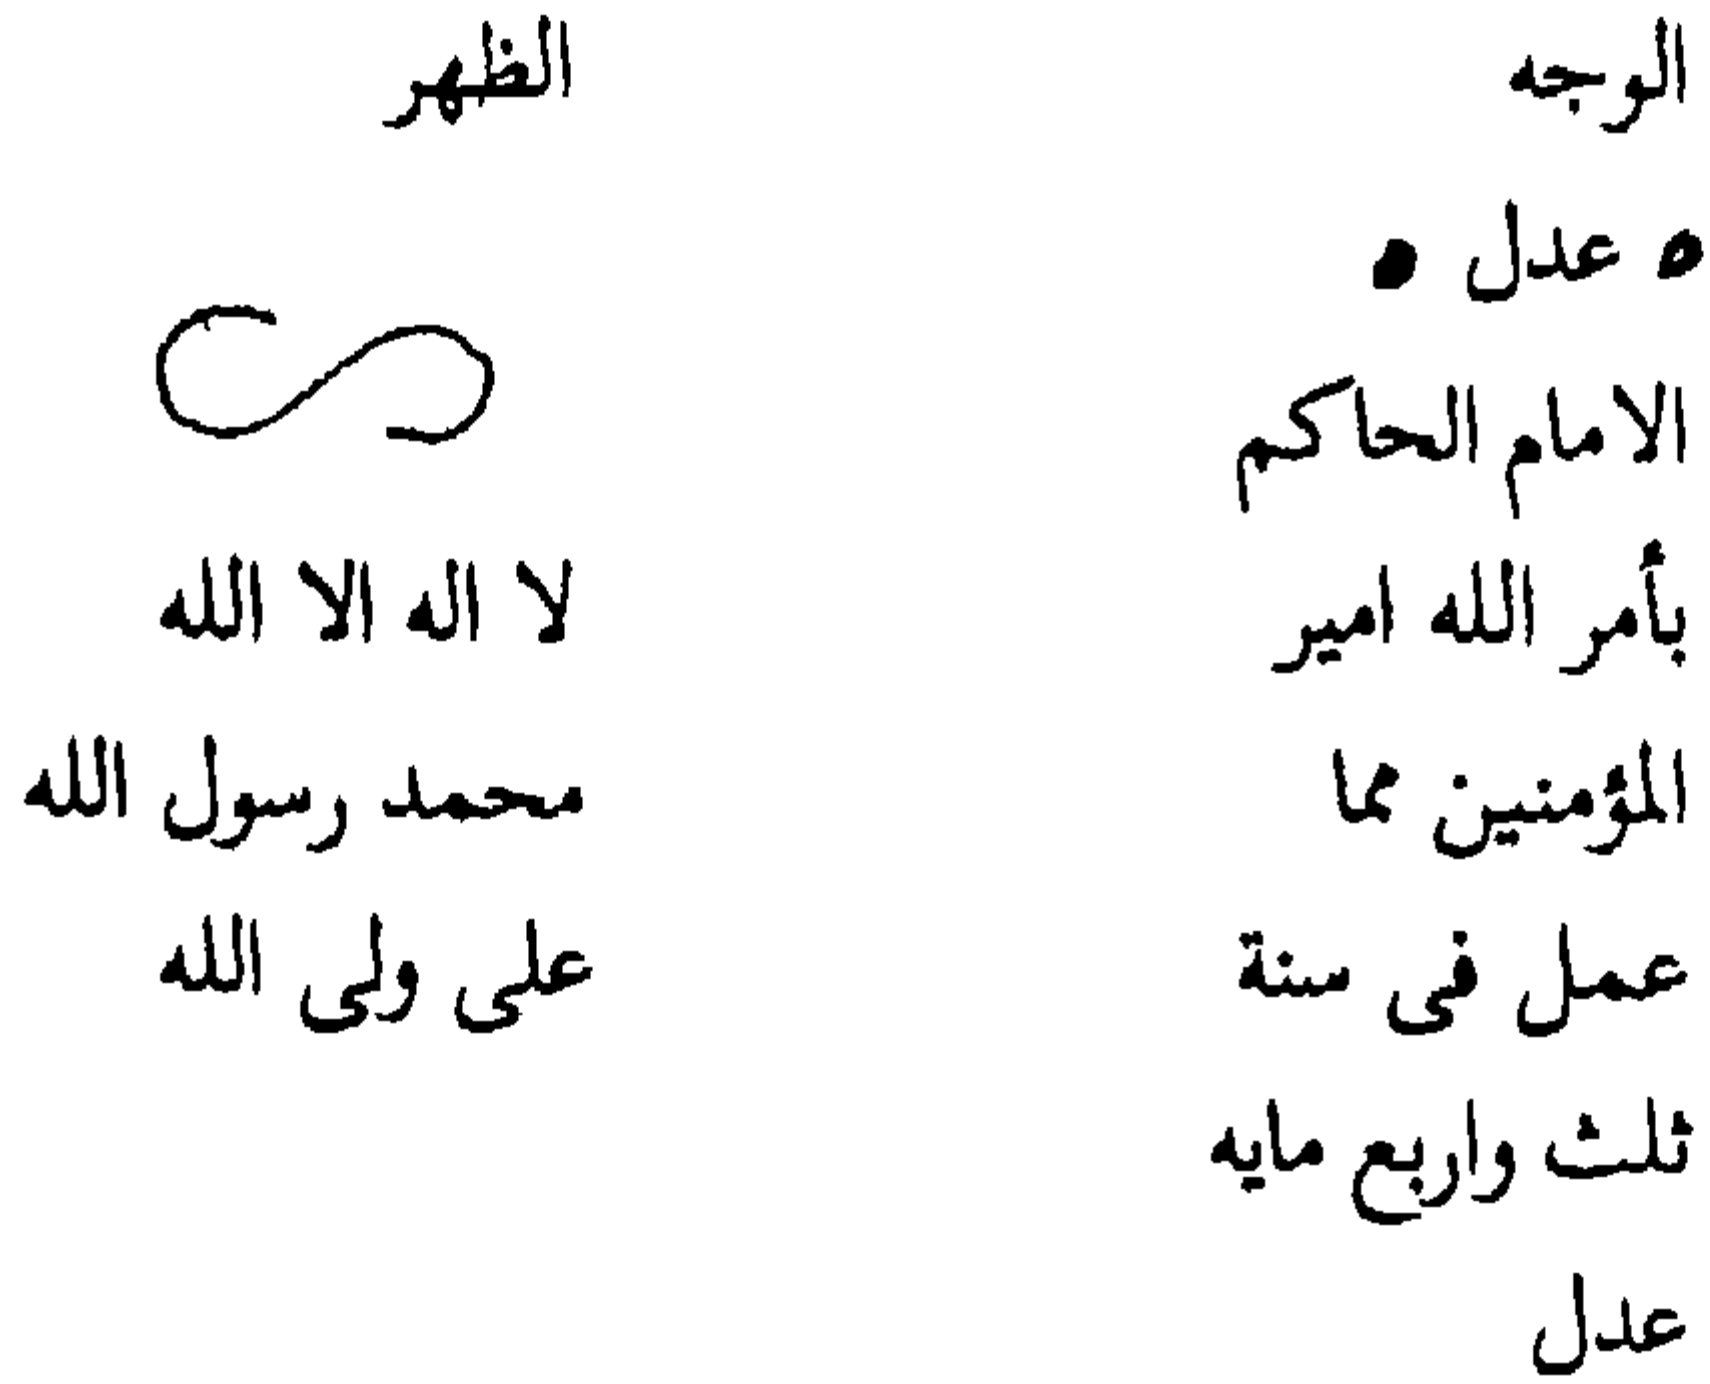 الوجه
عدل
الامام الحاكم
بأمر الله امير
المؤمنين مما
عمل فى سنة
ثلث واربع مايه
عدل
الظهر
لا اله الا الله
محمد رسول الله
على ولى الله